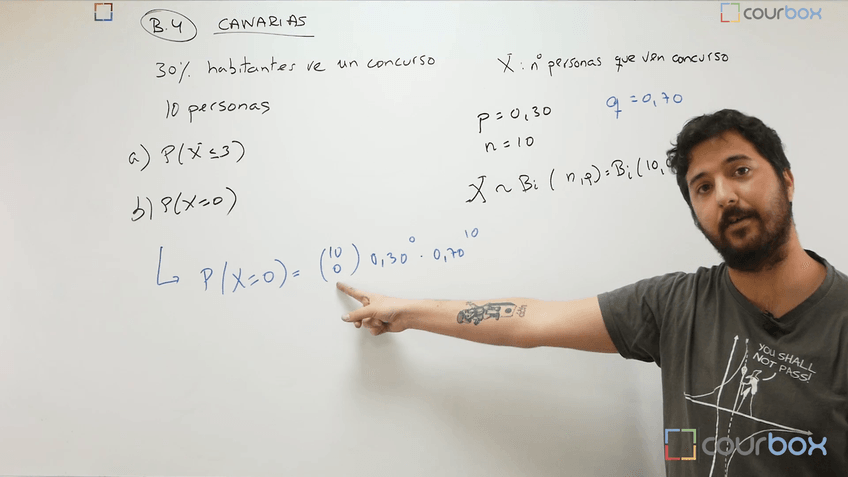 B.4 CANARIAS
30% habitantes ve un concurso
10 personas
a) P(X≤3)
b) P(X=0)
P(X=0) = (10 0) 0,30⁰ · 0,70¹⁰
X: nº personas que ven concurso
p = 0,30 q = 0,70
n = 10
X ~ Bi (n,p) = Bi (10,0
YOU SHALL
NOT PASS!
courbox
courbox